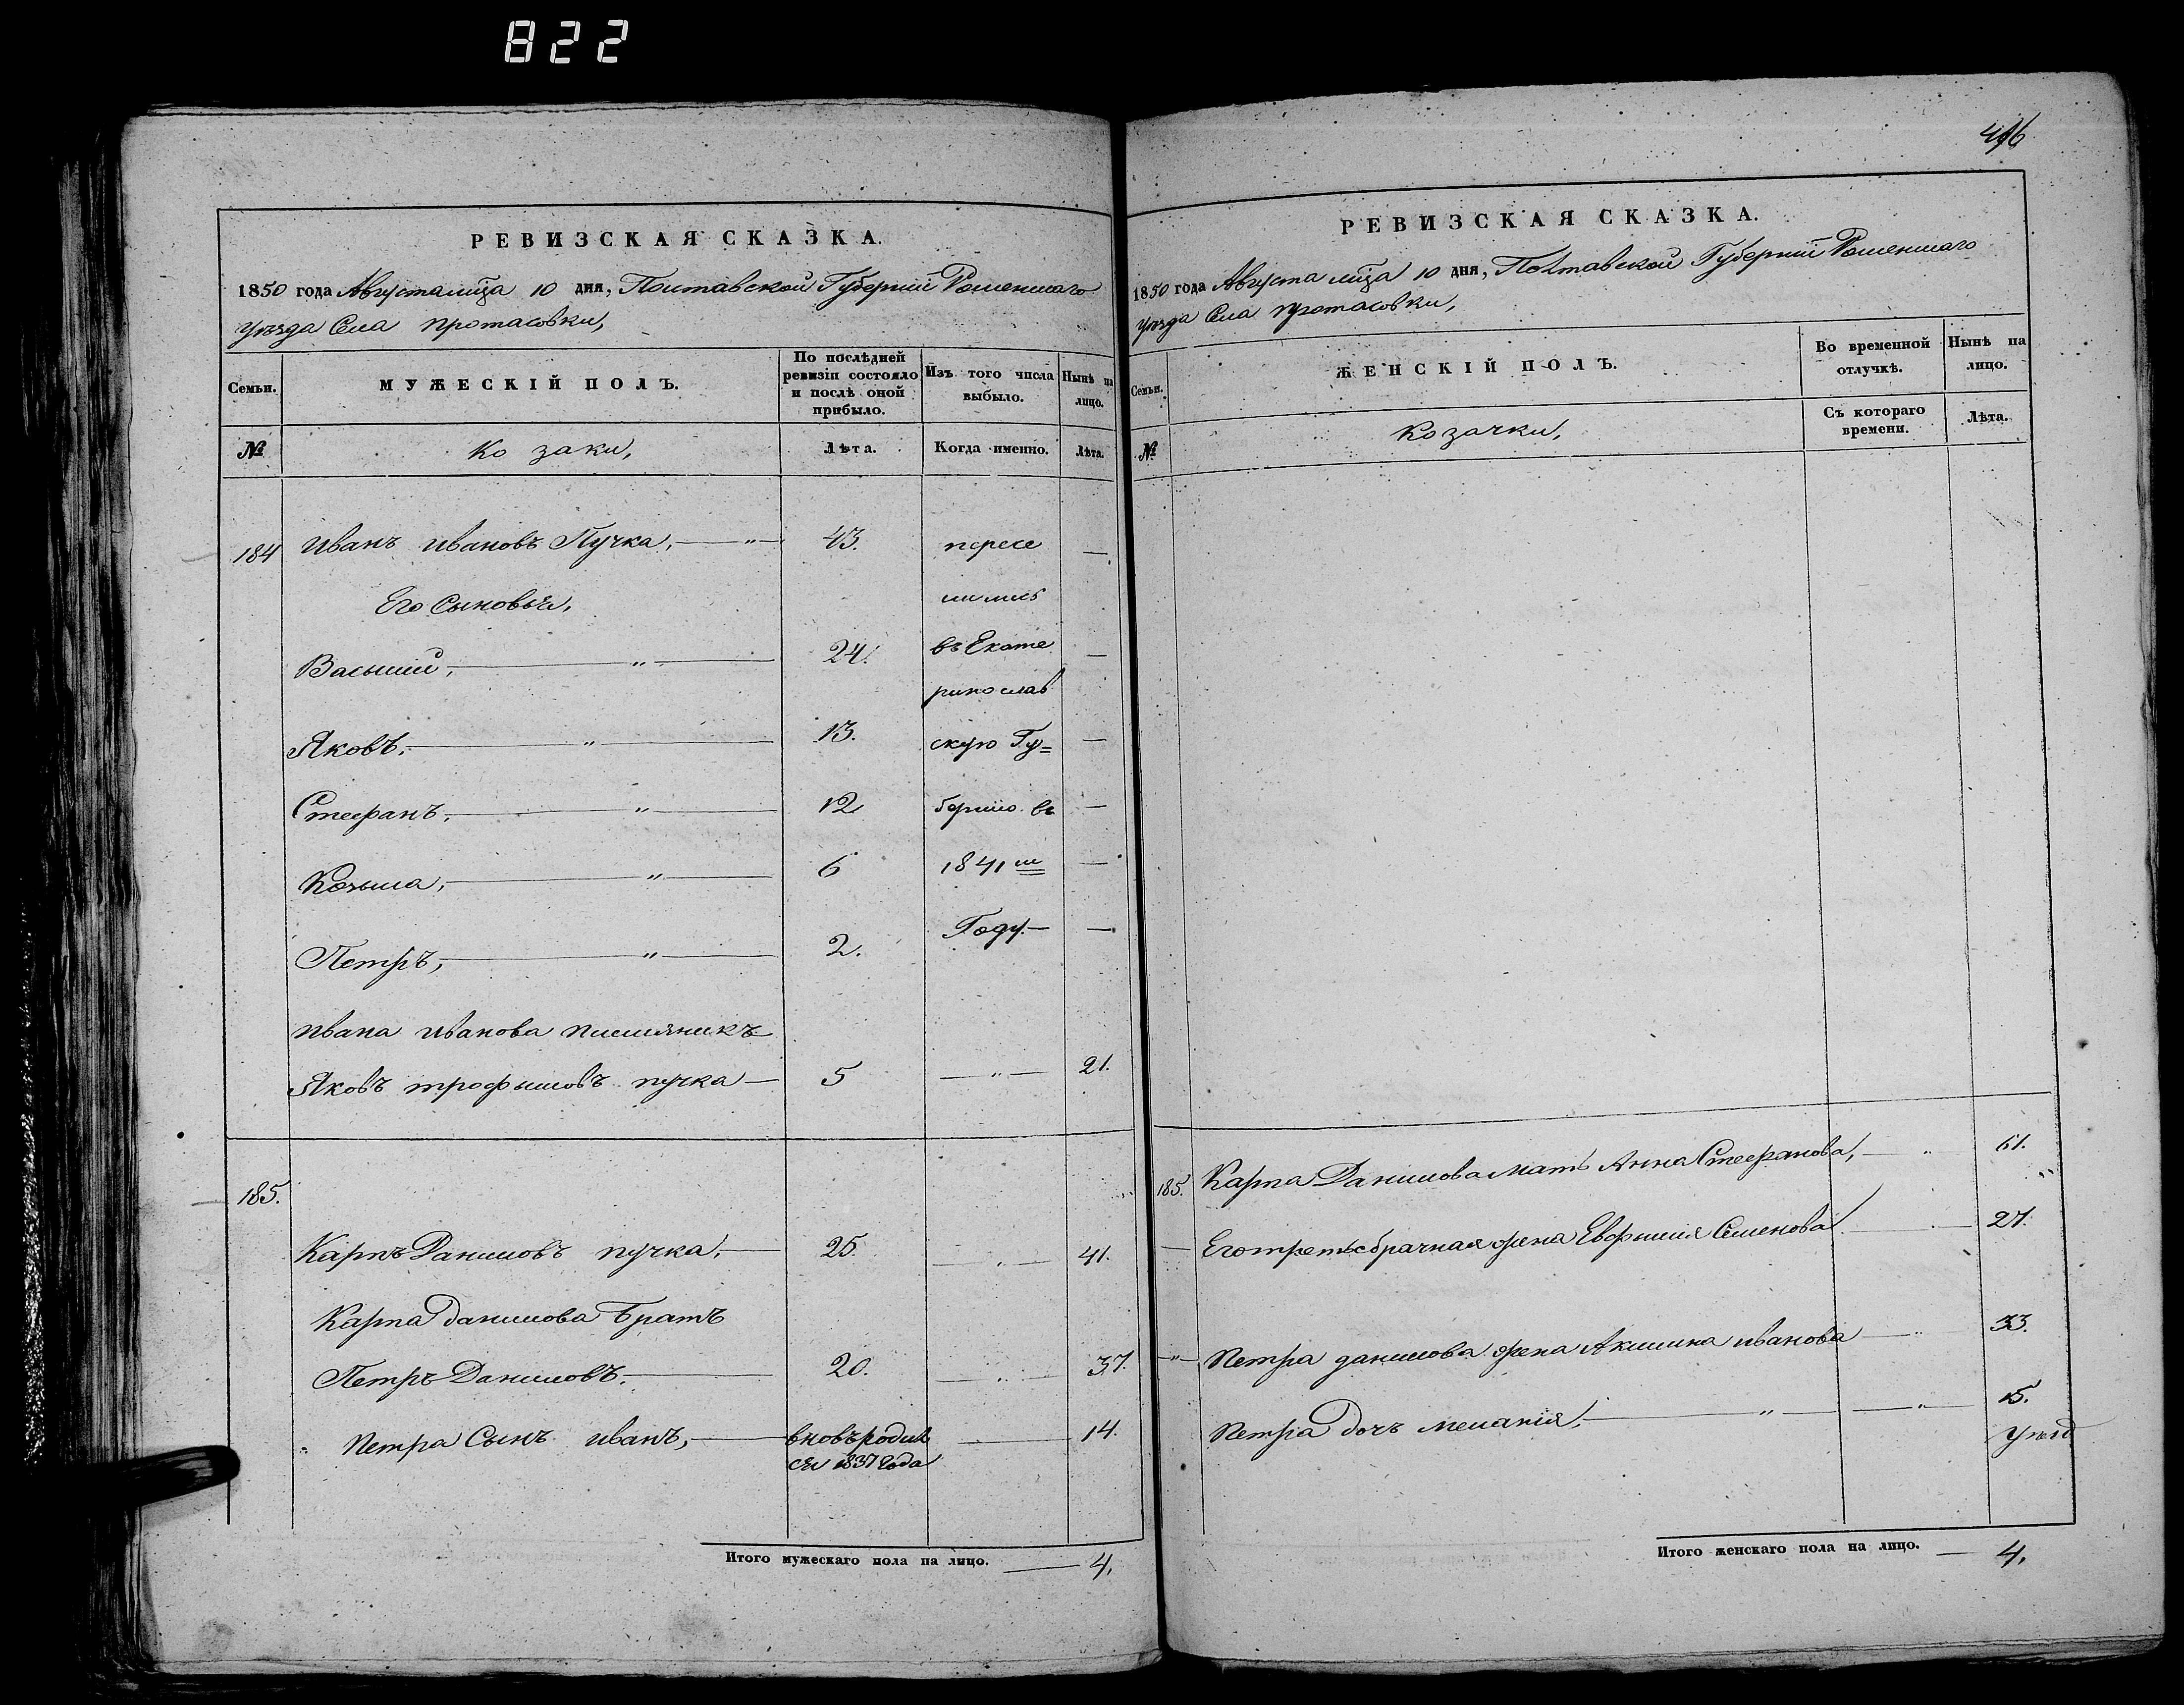 822
РЕВИЗСКАЯ СКАЗКА.
1850 года Августа мца 10 дня, Полтавской Губерніи Роменшаго
уѣзда Села Протасовки,
Семьи.
МУЖЕСКІЙ ПОЛЪ.
По послѣдней ревизіи состояло и послѣ оной прибыло.
Изъ того числа выбыло.
Нынѣ на лицо.
№
Козаки,
Лѣта.
Когда именно.
Лѣта.
184 Иванъ Ивановъ Пучка, 43. пересе
Его Сыновья, лились
Василій, 24. въ Екате
ринослав
Яковъ, 13. скую Гу=
Стефанъ, 12 бернію въ
Козьма, 6 1841 м
Петръ, 2. Году.
Ивана Иванова племяникъ
Яковъ Трофимовъ Пучка 5 21.
185.
Карпъ Даниловъ Пучка, 25. 41.
Карпа Данилова Братъ
Петръ Даниловъ. 20. 37.
Петра Сынъ Иванъ, вновь родил 14.
ся 1837 года
Итого мужескаго пола на лицо. 4.
РЕВИЗСКАЯ СКАЗКА.
1850 года Августа мца 10 дня, Полтавской Губерніи Роменшаго
уѣзда Села Протасовки,
Семьи.
ЖЕНСКІЙ ПОЛЪ.
Во временной отлучкѣ.
Нынѣ на лицо.
№
Козачки,
Съ котораго времени.
Лѣта.
185. Карпа Данилова мать Анна Стефанова, 61.
Его третьебрачная жена Евфимія Семенова 27.
Петра Данилова жена Акилина Иванова 33.
Петра дочь Меланія, 15.
Итого женскаго пола на лицо. 4.